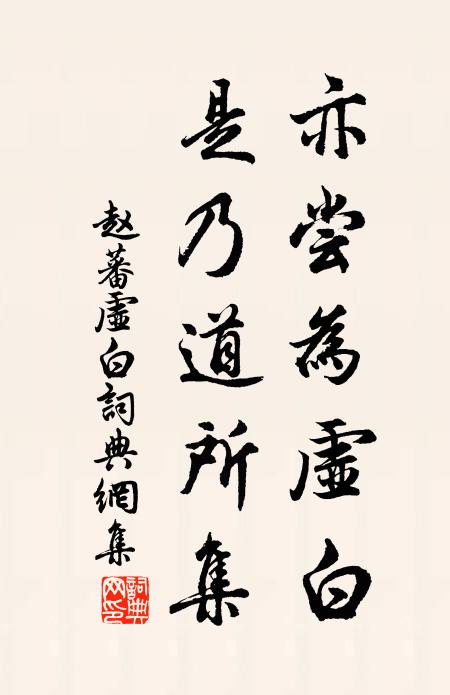 亦尝為虛白
是乃道所集
赵蕃虛白詞典網集
詞典网印